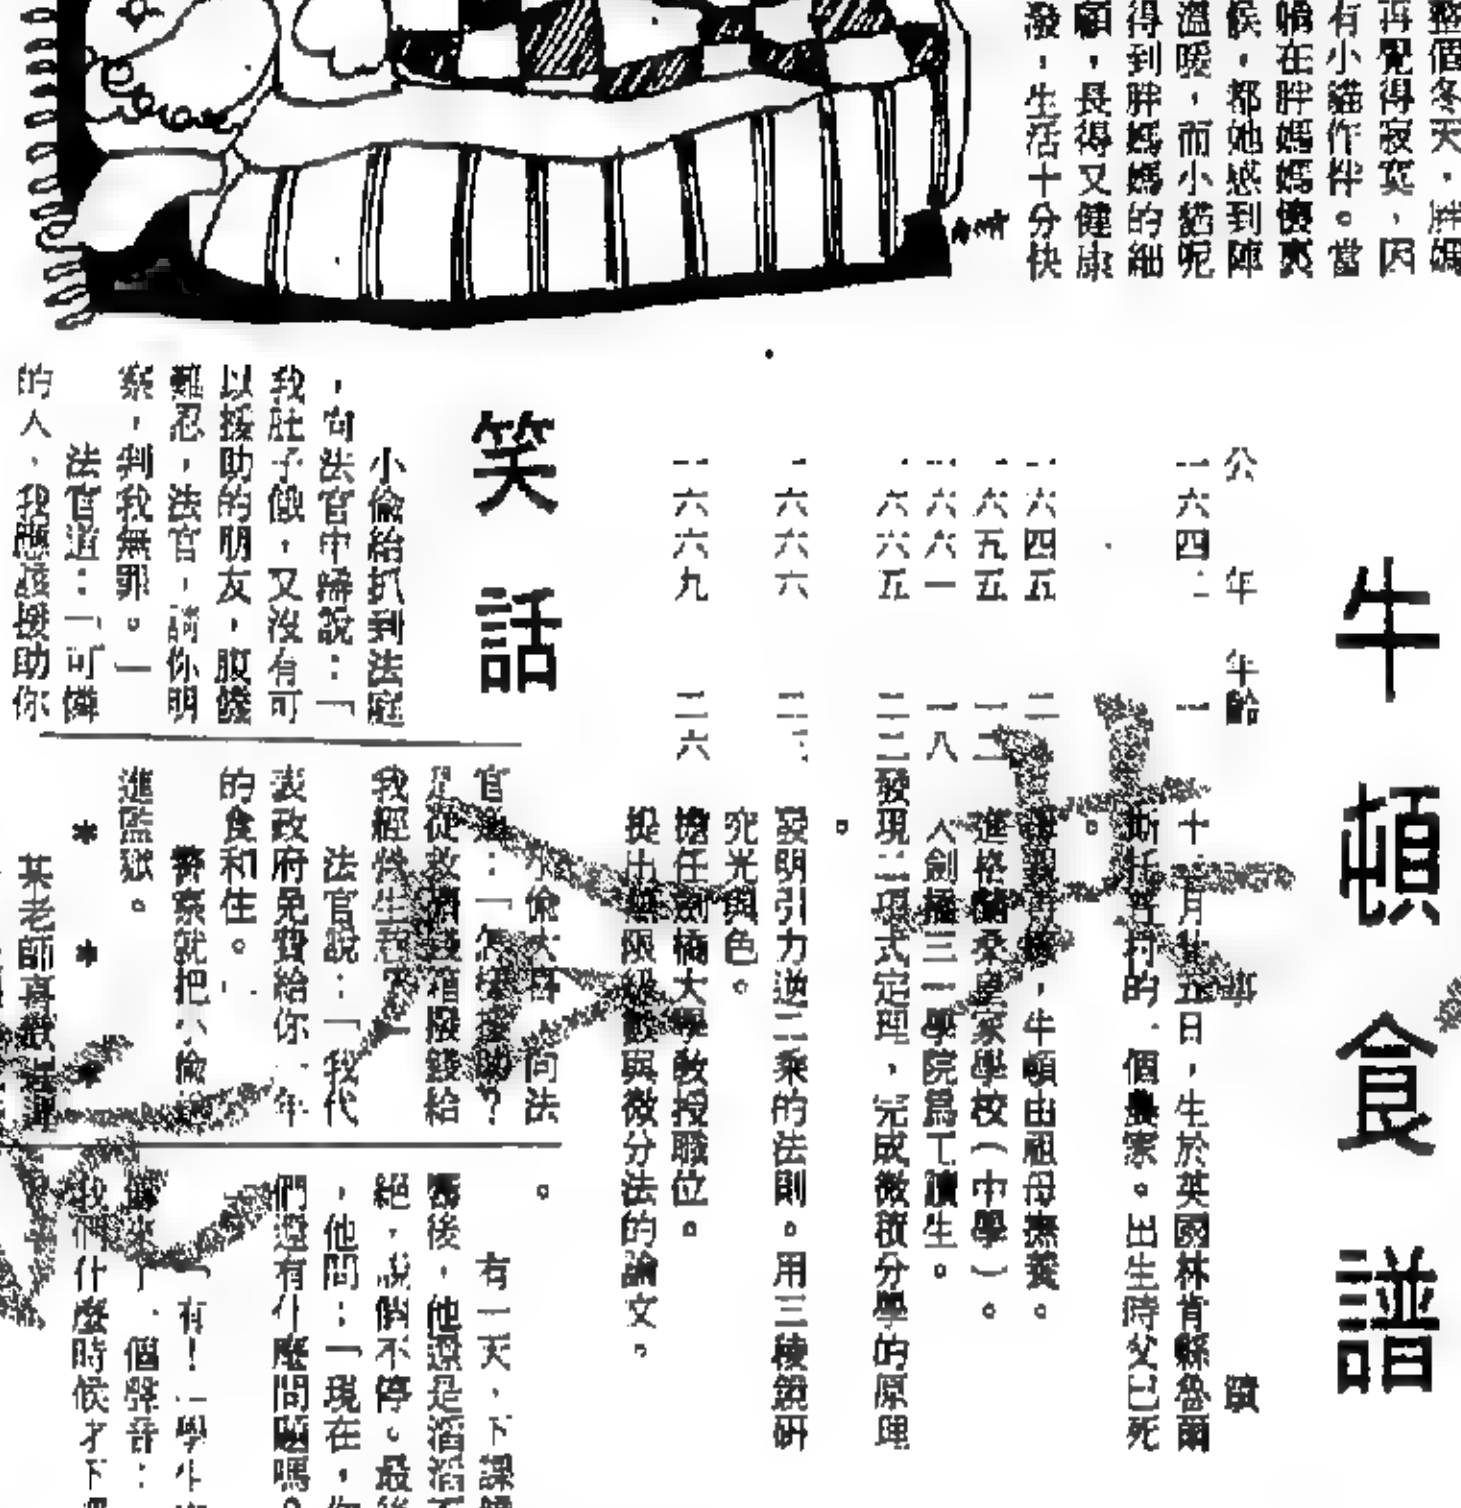 整個冬天，胖媽
再覺得寂寞，因
有小貓作伴。當
躺在胖媽媽懷裏
候，都她感到陣
溫暖，而小貓呢
得到胖媽媽的細
顧，長得又健康
潑，生活十分快
牛頓食譜
公年 年齡 事蹟
一六四二 一 十二月廿五日，生於英國林肯縣魯爾
斯托普村的一個農家。出生時父已死
。
一六四五 三 母親再嫁，牛頓由祖母撫養。
一六五五 一二 進格蘭桑望家學校（中學）。
一六六一 一八 入劍橋三一學院爲工讀生。
一六六五 二二 發現二項式定理，完成微積分學的原理
。
一六六六 二三 發明引力逆二乘的法則。用三稜鏡研
究光與色。
一六六九 二六 擔任劍橋大學教授職位。
提出無限級數與微分法的論文。
笑話
小偷給抓到法庭
，向法官申辯說：「
我肚子餓，又沒有可
以援助的朋友，腹饑
難忍，法官，請你明
察，判我無罪。」
法官道：「可憐
的人，我應該援助你
。
小偷大喜，向法
官道：「怎樣援助？
是從救濟箱撥錢給
我經營生意？」
法官說：「我代
表政府免費給你一年
的食和住。
警察就把小偷
進監獄。
* * *
某老師喜歡
有一天，下課
後，他還是滔滔不
絕，說個不停。最後
，他問：「現在，你
們還有什麼問題嗎？
「有！」學生
一個聲音：
我們什麼時候才下課